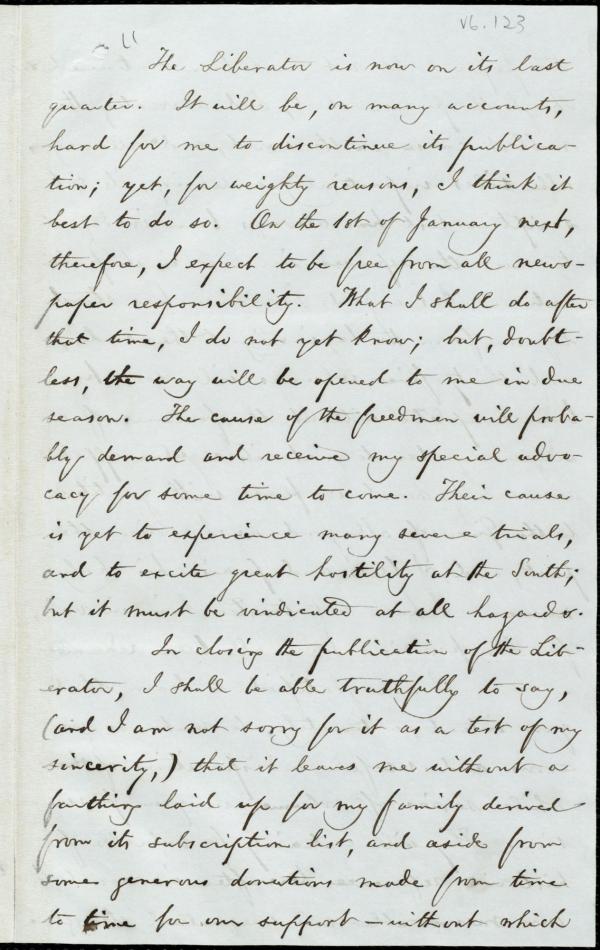 v6.123
The Liberator is now on its last
quarter. It will be, on many accounts,
hard for me to discontinue its publica-
tion; yet, for weighty reasons, I think it
best to do so. On the 1st of January next,
therefore, I expect to be free from all news-
paper responsibility. What I shall do after
that time, I do not yet know; but, doubt-
less, the way will be opened to me in due
season. The cause of the freedmen will proba-
bly demand and receive my special advo-
cacy for some time to come. Their cause
is yet to experience many severe trials,
and to excite great hostility at the South;
but it must be vindicated at all hazards.
In closing the publication of the Lib-
erator, I shall be able truthfully to say,
(and I am not sorry for it as a test of my
sincerity,) that it leaves me without a
farthing laid up for my family derived
from its subscription list, and aside from
some generous donations made from time
to time for our support — without which